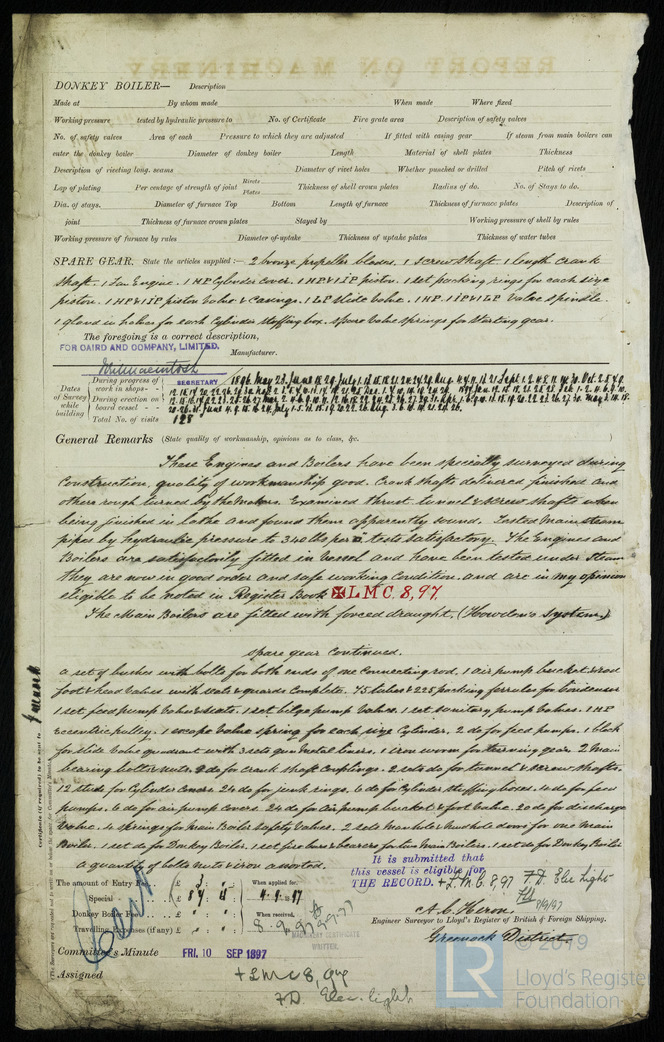 REPORT ON MACHINERY
DONKEY BOILER— Description
Made at By whom made When made Where fixed
Working pressure tested by hydraulic pressure to No. of Certificate Fire grate area Description of safety valves
No. of safety valves Area of each Pressure to which they are adjusted If fitted with easing gear If steam from main boilers can
enter the donkey boiler Diameter of donkey boiler Length Material of shell plates Thickness
Description of riveting long. seams Diameter of rivet holes Whether punched or drilled Pitch of rivets
Lap of plating Per centage of strength of joint Rivets Plates Thickness of shell crown plates Radius of do. No. of Stays to do.
Dia. of stays. Diameter of furnace Top Bottom Length of furnace Thickness of furnace plates Description of
joint Thickness of furnace crown plates Stayed by Working pressure of shell by rules
Working pressure of furnace by rules Diameter of uptake Thickness of uptake plates Thickness of water tubes
SPARE GEAR. State the articles supplied:— 2 bronze propeller blades. 1 screw shaft. 1 length crank
shaft. 1 Fan Engine. 1 HP Cylinder cover. 1 HP & 1 IP piston. 1 set packing rings for each size
piston. 1 HP & 1 IP piston valve & casings. 1 LP slide valve. 1 HP. 1 IP & LP valve spindle.
1 gland in halves for each Cylinder stuffing box. spare valve springs for starting gear.
The foregoing is a correct description,
FOR CAIRD AND COMPANY, LIMITED. Manufacturer.
SECRETARY
Dates of Survey while building
During progress of work in shops - -
During erection on board vessel - - -
Total No. of visits 125
General Remarks (State quality of workmanship, opinions as to class, &c. )
These Engines and Boilers have been specially surveyed during
Construction, quality of workmanship good. Crank shafts delivered finished and
others rough turned by the Makers. Examined thrust tunnel & screw shafts when
being finished in lathe and found them apparently sound. Tested main steam
pipes by hydraulic pressure to 340 lbs per □" tests satisfactory. The Engines and
Boilers are satisfactorily fitted in vessel and have been tested under steam
they are now in good order and safe working condition. and are in my opinion
eligible to be noted in Register Book ✠ L M C. 8, 97.
The Main Boilers are fitted with forced draught. (Howden's System.)
spare gear continued.
a set of bushes with bolts for both ends of one connecting rod. 1 air pump bucket & rod
foot & head valves with seats & guards complete. 75 tubes & 225 packing ferrules for Condenser
1 set feed pump valves & seats. 1 set bilge pump valves. 1 set sanitary pump valves. 1 HP
eccentric pulley. 1 escape valve spring for each size Cylinder. 2 do for feed pumps. 1 block
for slide valve quadrant with 3 sets gun metal liners. 1 iron worm for turning gear. 2 main
bearing bolts & nuts. 9 do for crank shaft couplings. 2 sets do for tunnel & screw shafts.
12 studs for Cylinder covers. 24 do for junk rings. 6 do for Cylinder stuffing boxes. 4 do for feed
pumps. 6 do for air pump covers. 24 do for Air pump bucket & foot valve. 20 do for discharge
valve. 4 springs for main Boiler safety valves. 2 sets Manhole & Mudhole doors for one main
Boiler. 1 set do for Donkey Boiler. 1 set fire bars & bearers for two Main Boilers. 1 set do for Donkey Boiler
a quantity of bolts nuts & iron assorted.
Certificate (if required) to be sent to Greenock
It is submitted that
this vessel is eligible for
THE RECORD. + L.M.C. 8, 97 F.D. Elec Light
8/9/97
The amount of Entry Fee £ 3 : " : When applied for,
Special £ 84 : 11 : 4.9.97
Donkey Boiler Fee £ : : When received,
Travelling Expenses (if any) £ : : 8.9.97
MACHINERY CERTIFICATE
WRITTEN.
A. C. Heron.
Engineer Surveyor to Lloyd's Register of British & Foreign Shipping.
Greenock District.
Committee's Minute FRI. 10 SEP 1897
Assigned + L M C 8, 97
F.D. Elec. light
© 2019
LR
Lloyd's Register
Foundation